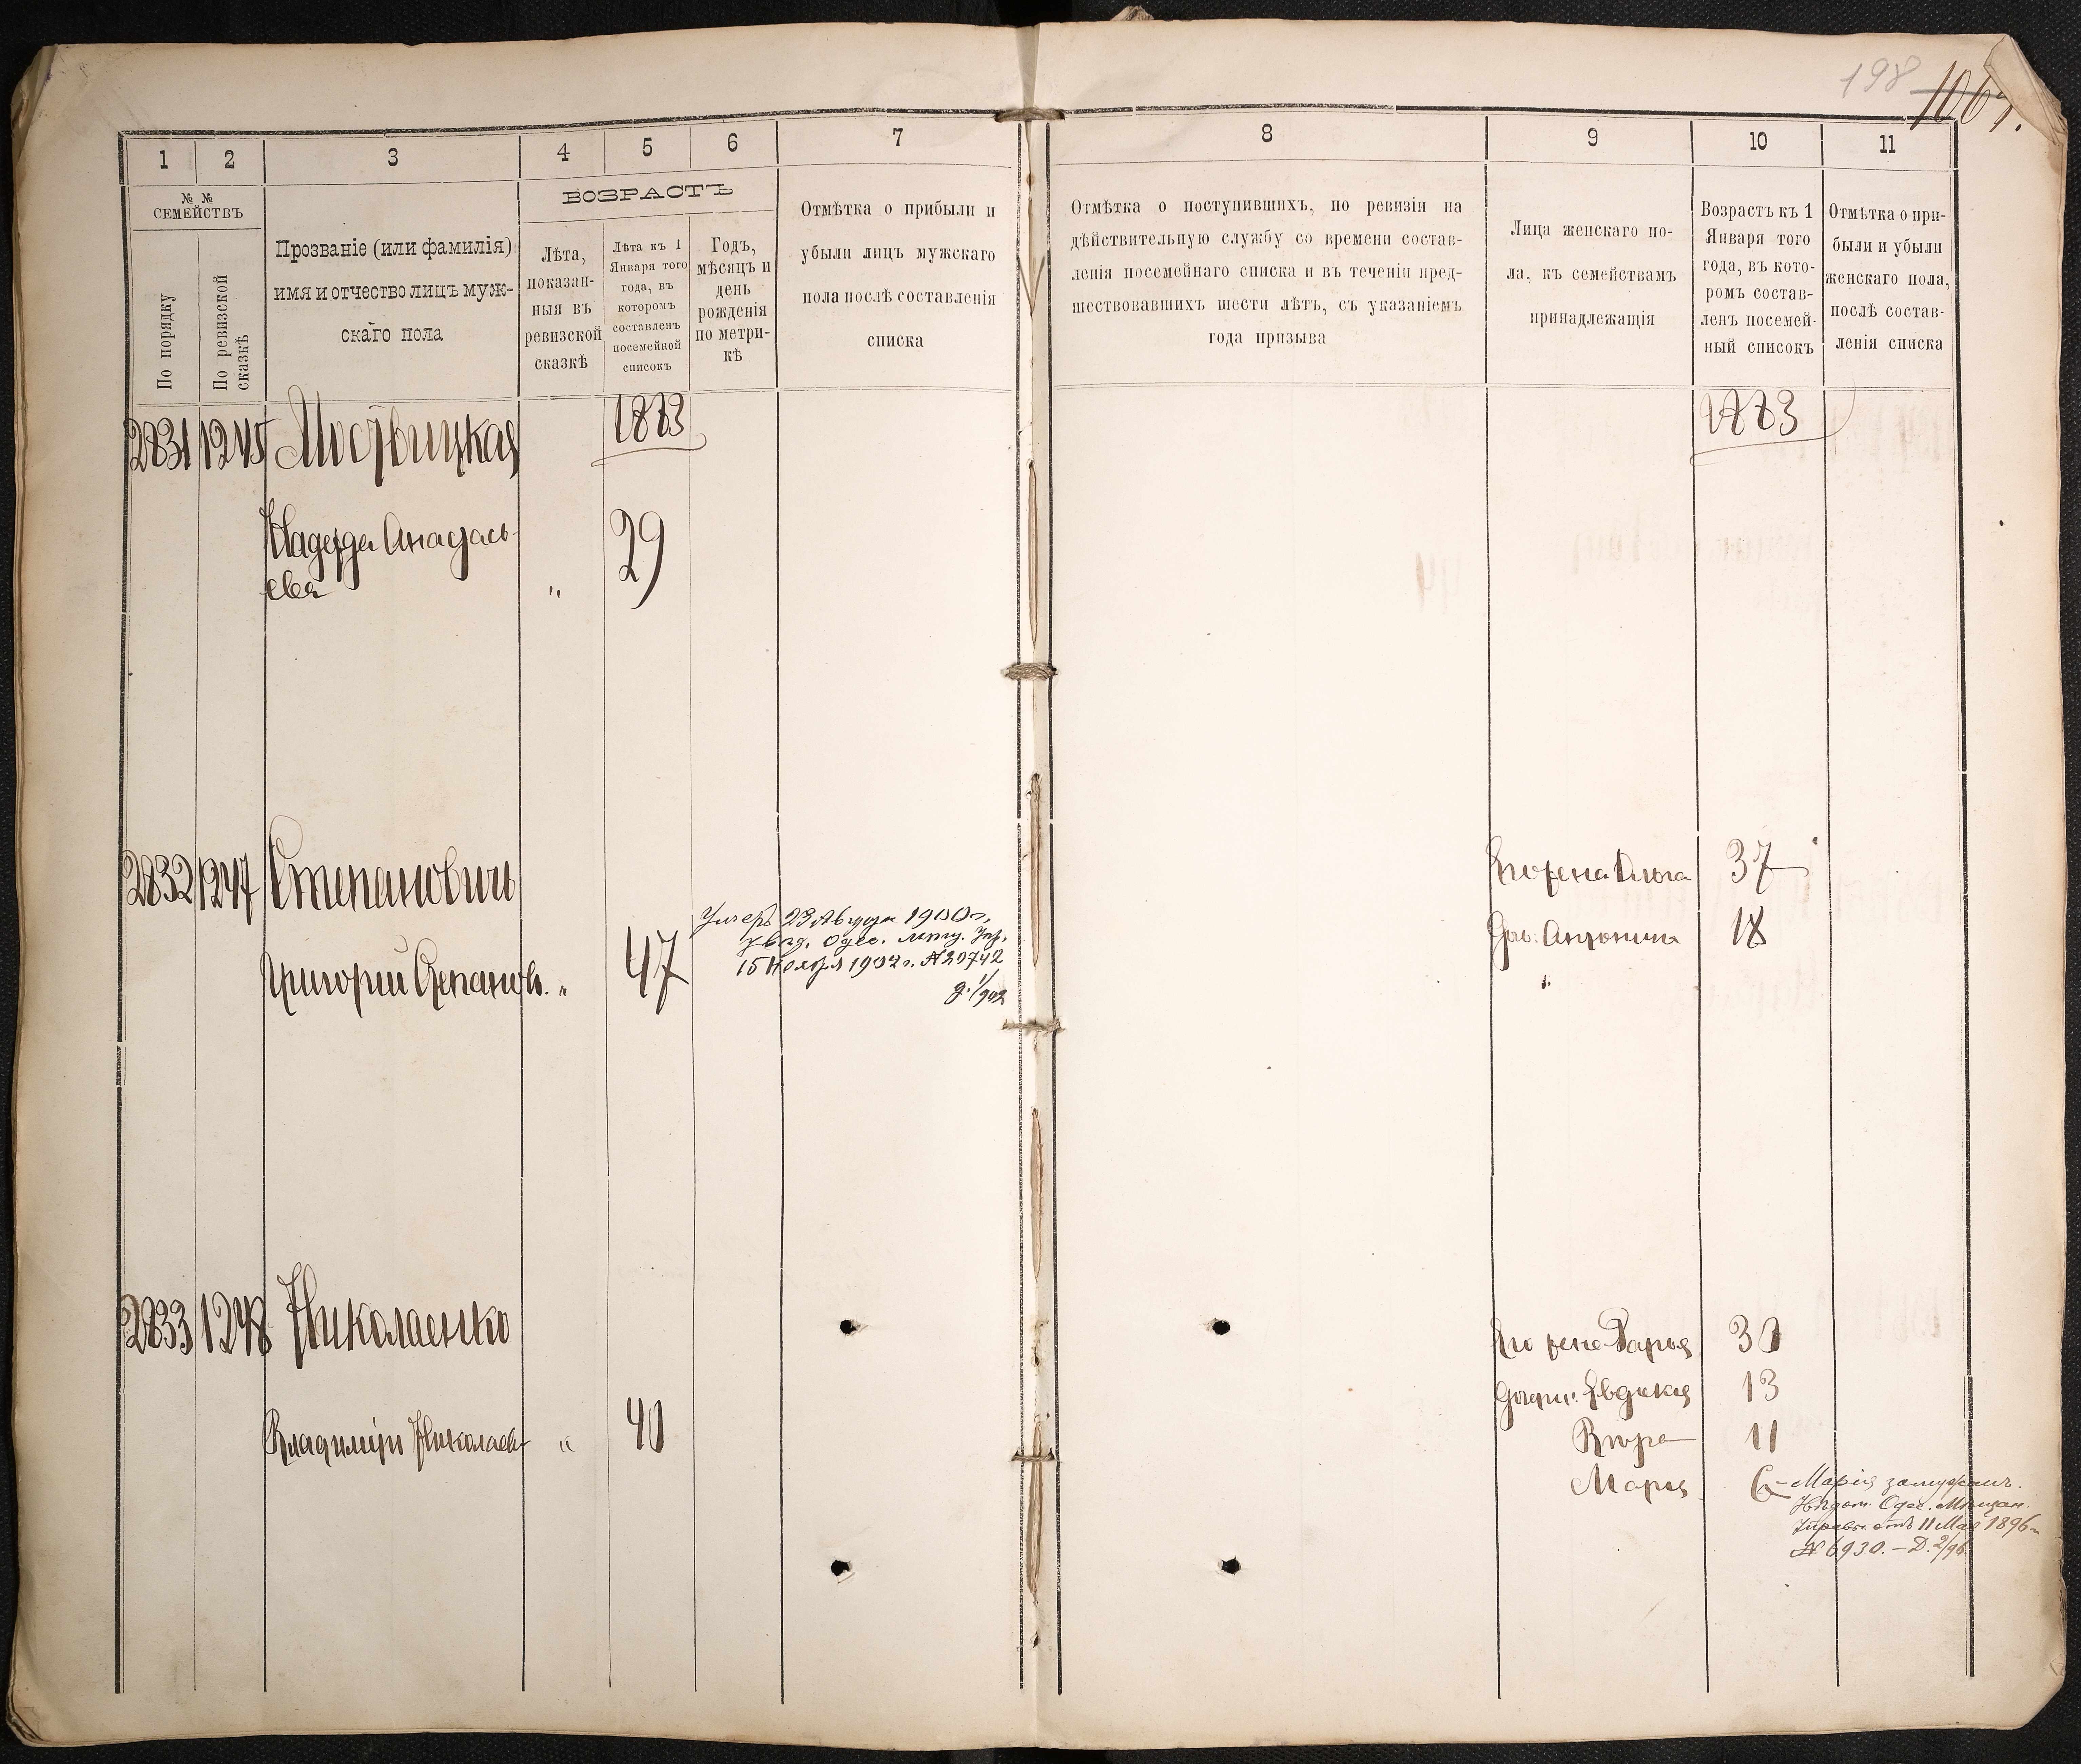 198
1064.
1
2
3
4
5
6
7
№ №
СЕМЕЙСТВЪ
По порядку
По ревизской
сказкѣ
Прозваніе (или фамилія)
имя и отчество лицъ муж-
скаго пола
ВОЗРАСТЪ
Лѣта,
показан-
ныя въ
ревизской
сказкѣ
Лѣта къ 1
Января того
года, въ
которомъ
составленъ
посемейной
списокъ
Годъ,
мѣсяцъ и
день
рожденія
по метри-
кѣ
Отмѣтка о прибыли и
убыли лицъ мужскаго
пола послѣ составленія
списка
8
9
10
11
Отмѣтка о поступившихъ, по ревизіи на
дѣйствительную службу со времени состав-
ленія посемейнаго списка и въ теченіи пред-
шествовавшихъ шести лѣтъ, съ указаніемъ
года призыва
Лица женскаго по-
ла, къ семействамъ
принадлежащія
Возрастъ къ 1
Января того
года, въ кото-
ромъ состав-
ленъ посемей-
ный списокъ
Отмѣтка о при-
были и убыли
женскаго пола,
послѣ состав-
ленія списка
2831 1245 Моствицкая 1883
1883
Надежда Анаталь-
ева " 29
2832 1247 Степановичъ
Григорій Степановъ. " 47
Умеръ 23 Августа 1900 г.
увѣд. Одес. мѣщ. Упр.
15 Ноября 1902 г. № 29742
Д. 1/902
Его жена Ольга 37
Доч: Антонина 18
2833 1248 Николаенко
Владиміръ Николаев " 40
Его жена Дарья 30
Дочери: Евдокія 13
Вѣра 11
Марія 6 - Марія замужемъ.
Увѣдом. Одес. Мѣщан.
Управы отъ 11 Мая 1896 г.
№ 6930. — Д. 2/96.